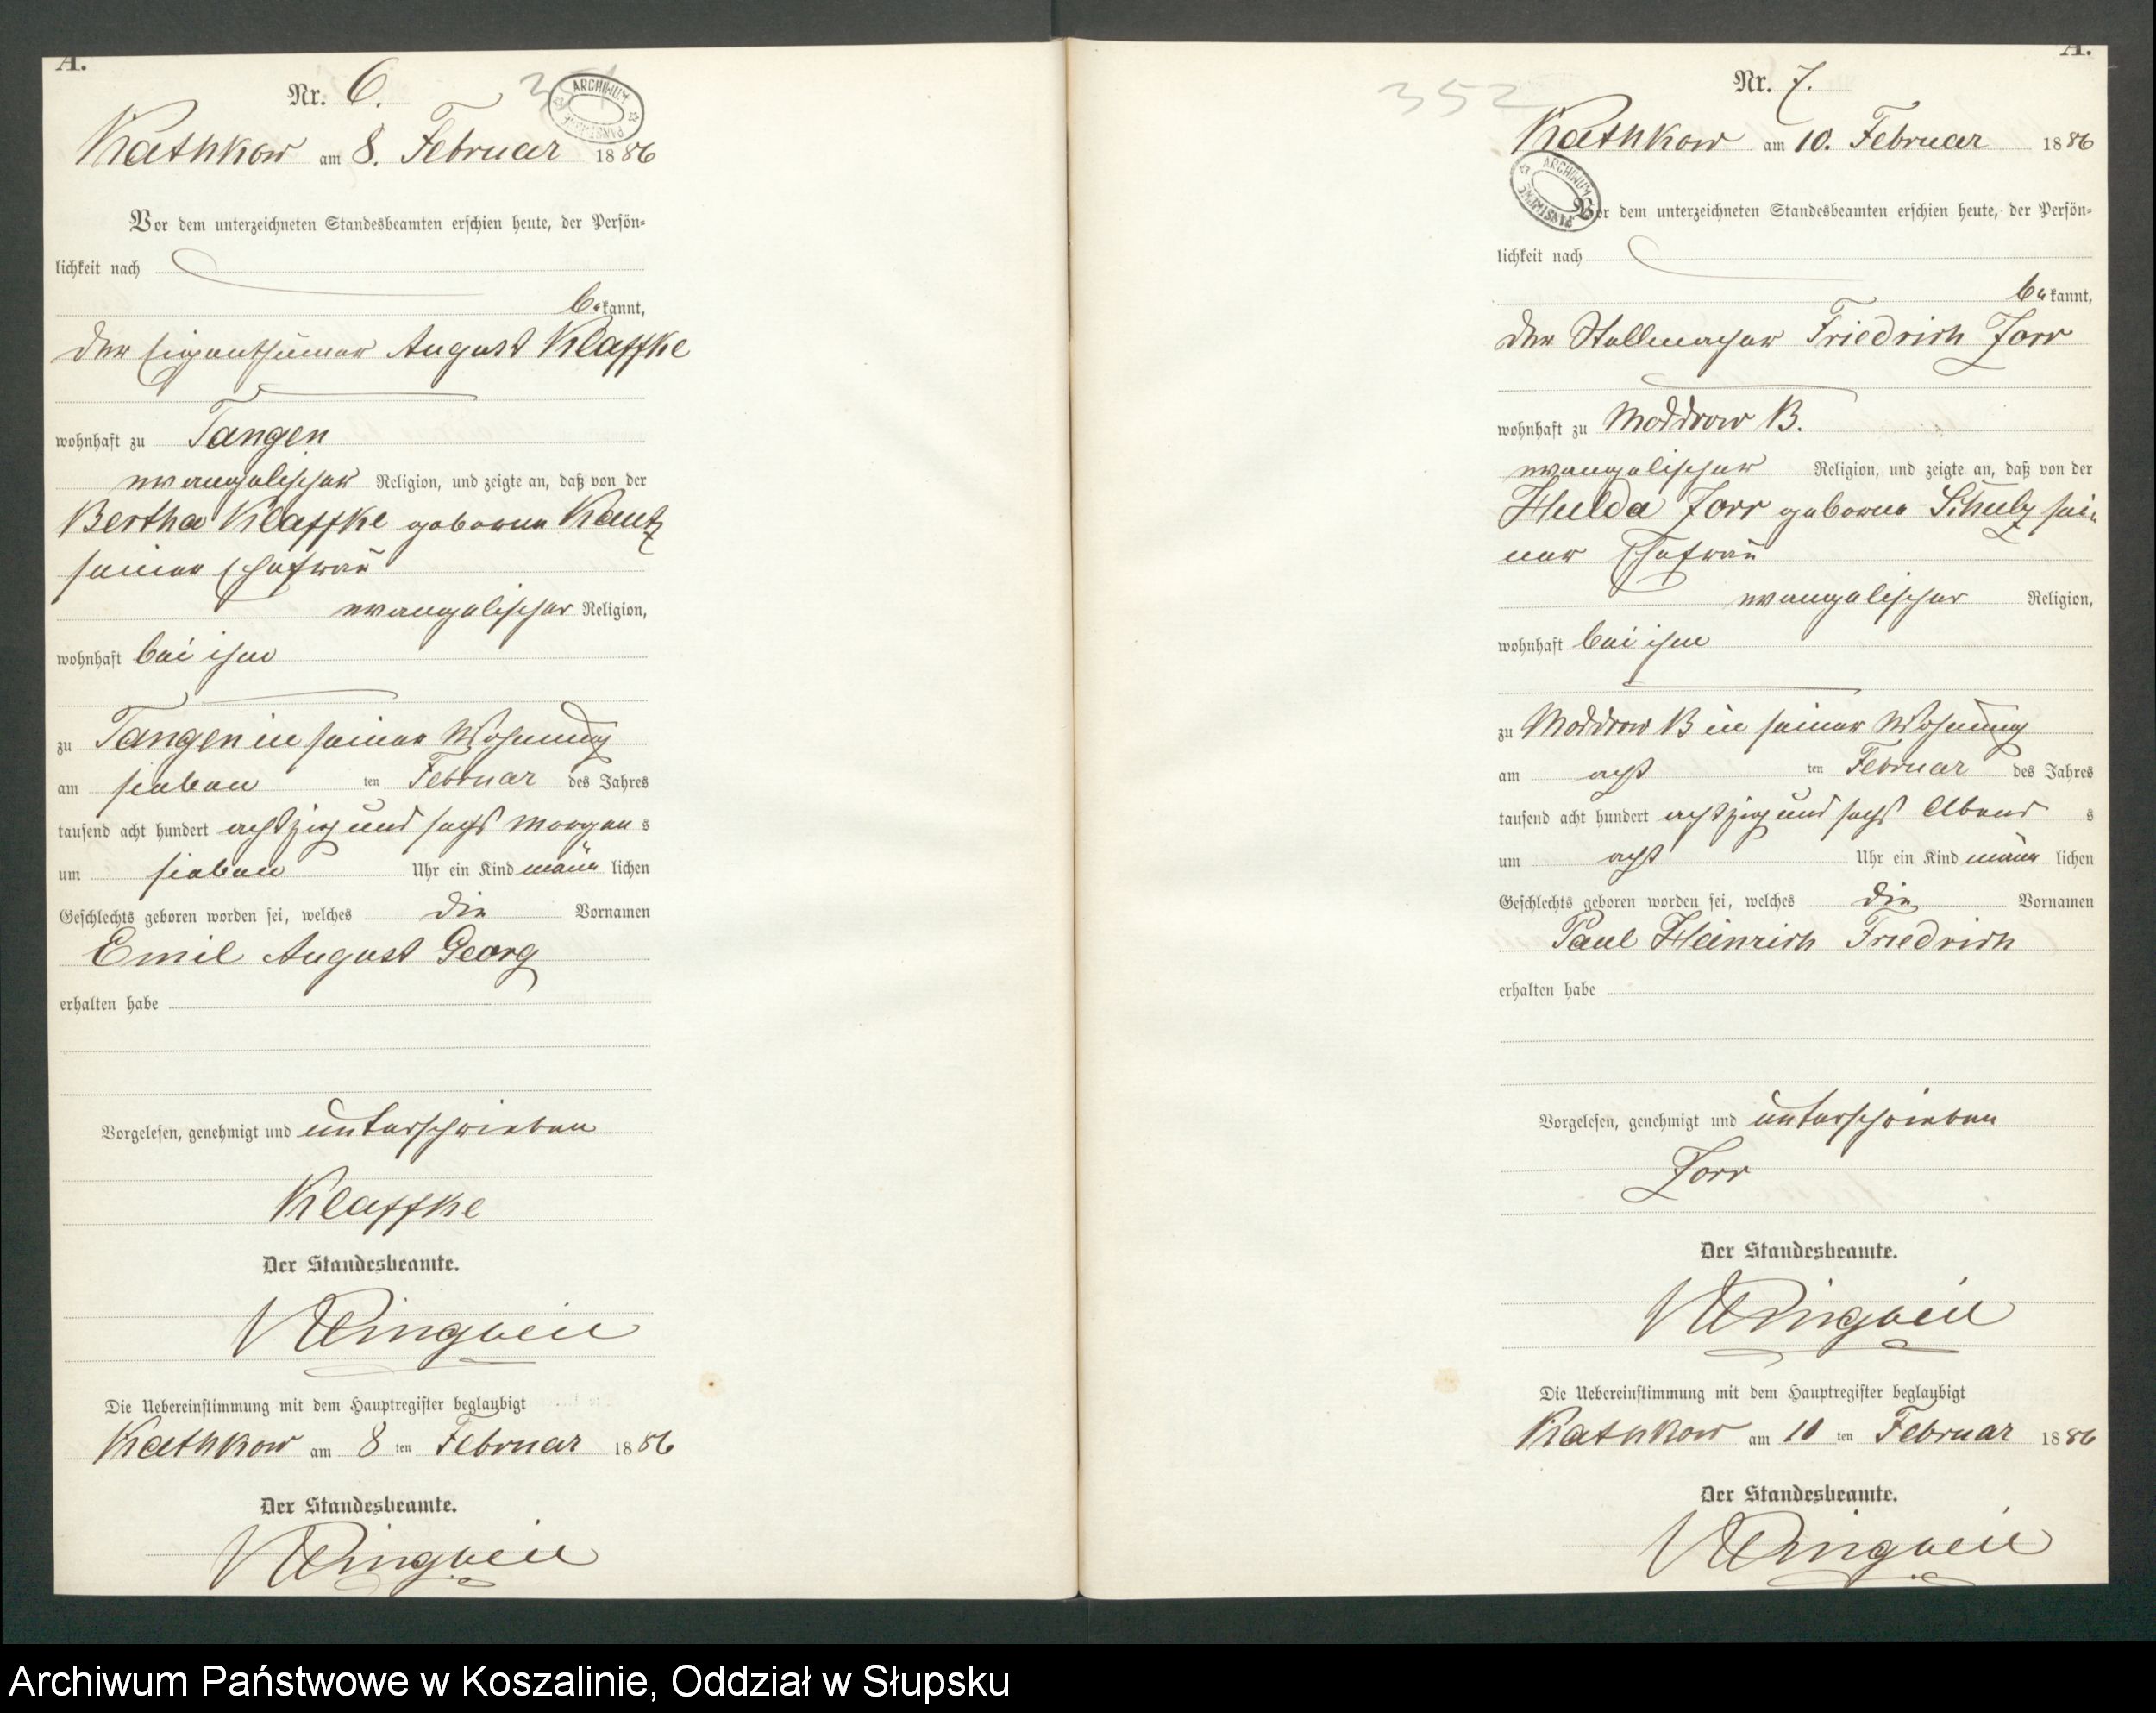 A.
Nr. 6.
Kathkow am 8. Februar 1886
Vor dem unterzeichneten Standesbeamten erschien heute, der Persön-
lichkeit nach
bekannt,
der Eigenthümer August Klaffke
wohnhaft zu Tangen
evangelischer Religion, und zeigte an, daß von der
Bertha Klaffke geborene Kautz
seiner Ehefrau
evangelischer Religion,
wohnhaft bei ihm
zu Tangen in seiner Wohnung
am sieben ten Februar des Jahres
tausend acht hundert achtzig und sechs Morgens
um sieben Uhr ein Kind männlichen
Geschlechts geboren worden sei, welches die Vornamen
Emil August Georg
erhalten habe
Vorgelesen, genehmigt und unterschrieben
Klaffke
Der Standesbeamte.
Die Uebereinstimmung mit dem Hauptregister beglaubigt
Kathkow am 8 ten Februar 1886
Der Standesbeamte.
ARCHIWUM PAŃSTWOWE
A.
352
Nr. 7.
Kathkow am 10. Februar 1886
ARCHIWUM PAŃSTWOWE
Vor dem unterzeichneten Standesbeamten erschien heute, der Persön-
lichkeit nach
bekannt,
der Stellmacher Friedrich Jorr
wohnhaft zu Moddrow B.
evangelischer Religion, und zeigte an, daß von der
Hulda Jorr geborene Schulz sei-
ner Ehefrau
evangelischer Religion,
wohnhaft bei ihm
zu Moddrow B in seiner Wohnung
am acht ten Februar des Jahres
tausend acht hundert achtzig und sechs Abends
um acht Uhr ein Kind männlichen
Geschlechts geboren worden sei, welches die Vornamen
Paul Heinrich Friedrich
erhalten habe
Vorgelesen, genehmigt und unterschrieben
Jorr
Der Standesbeamte.
Die Uebereinstimmung mit dem Hauptregister beglaubigt
Kathkow am 10 ten Februar 1886
Der Standesbeamte.
Archiwum Państwowe w Koszalinie, Oddział w Słupsku